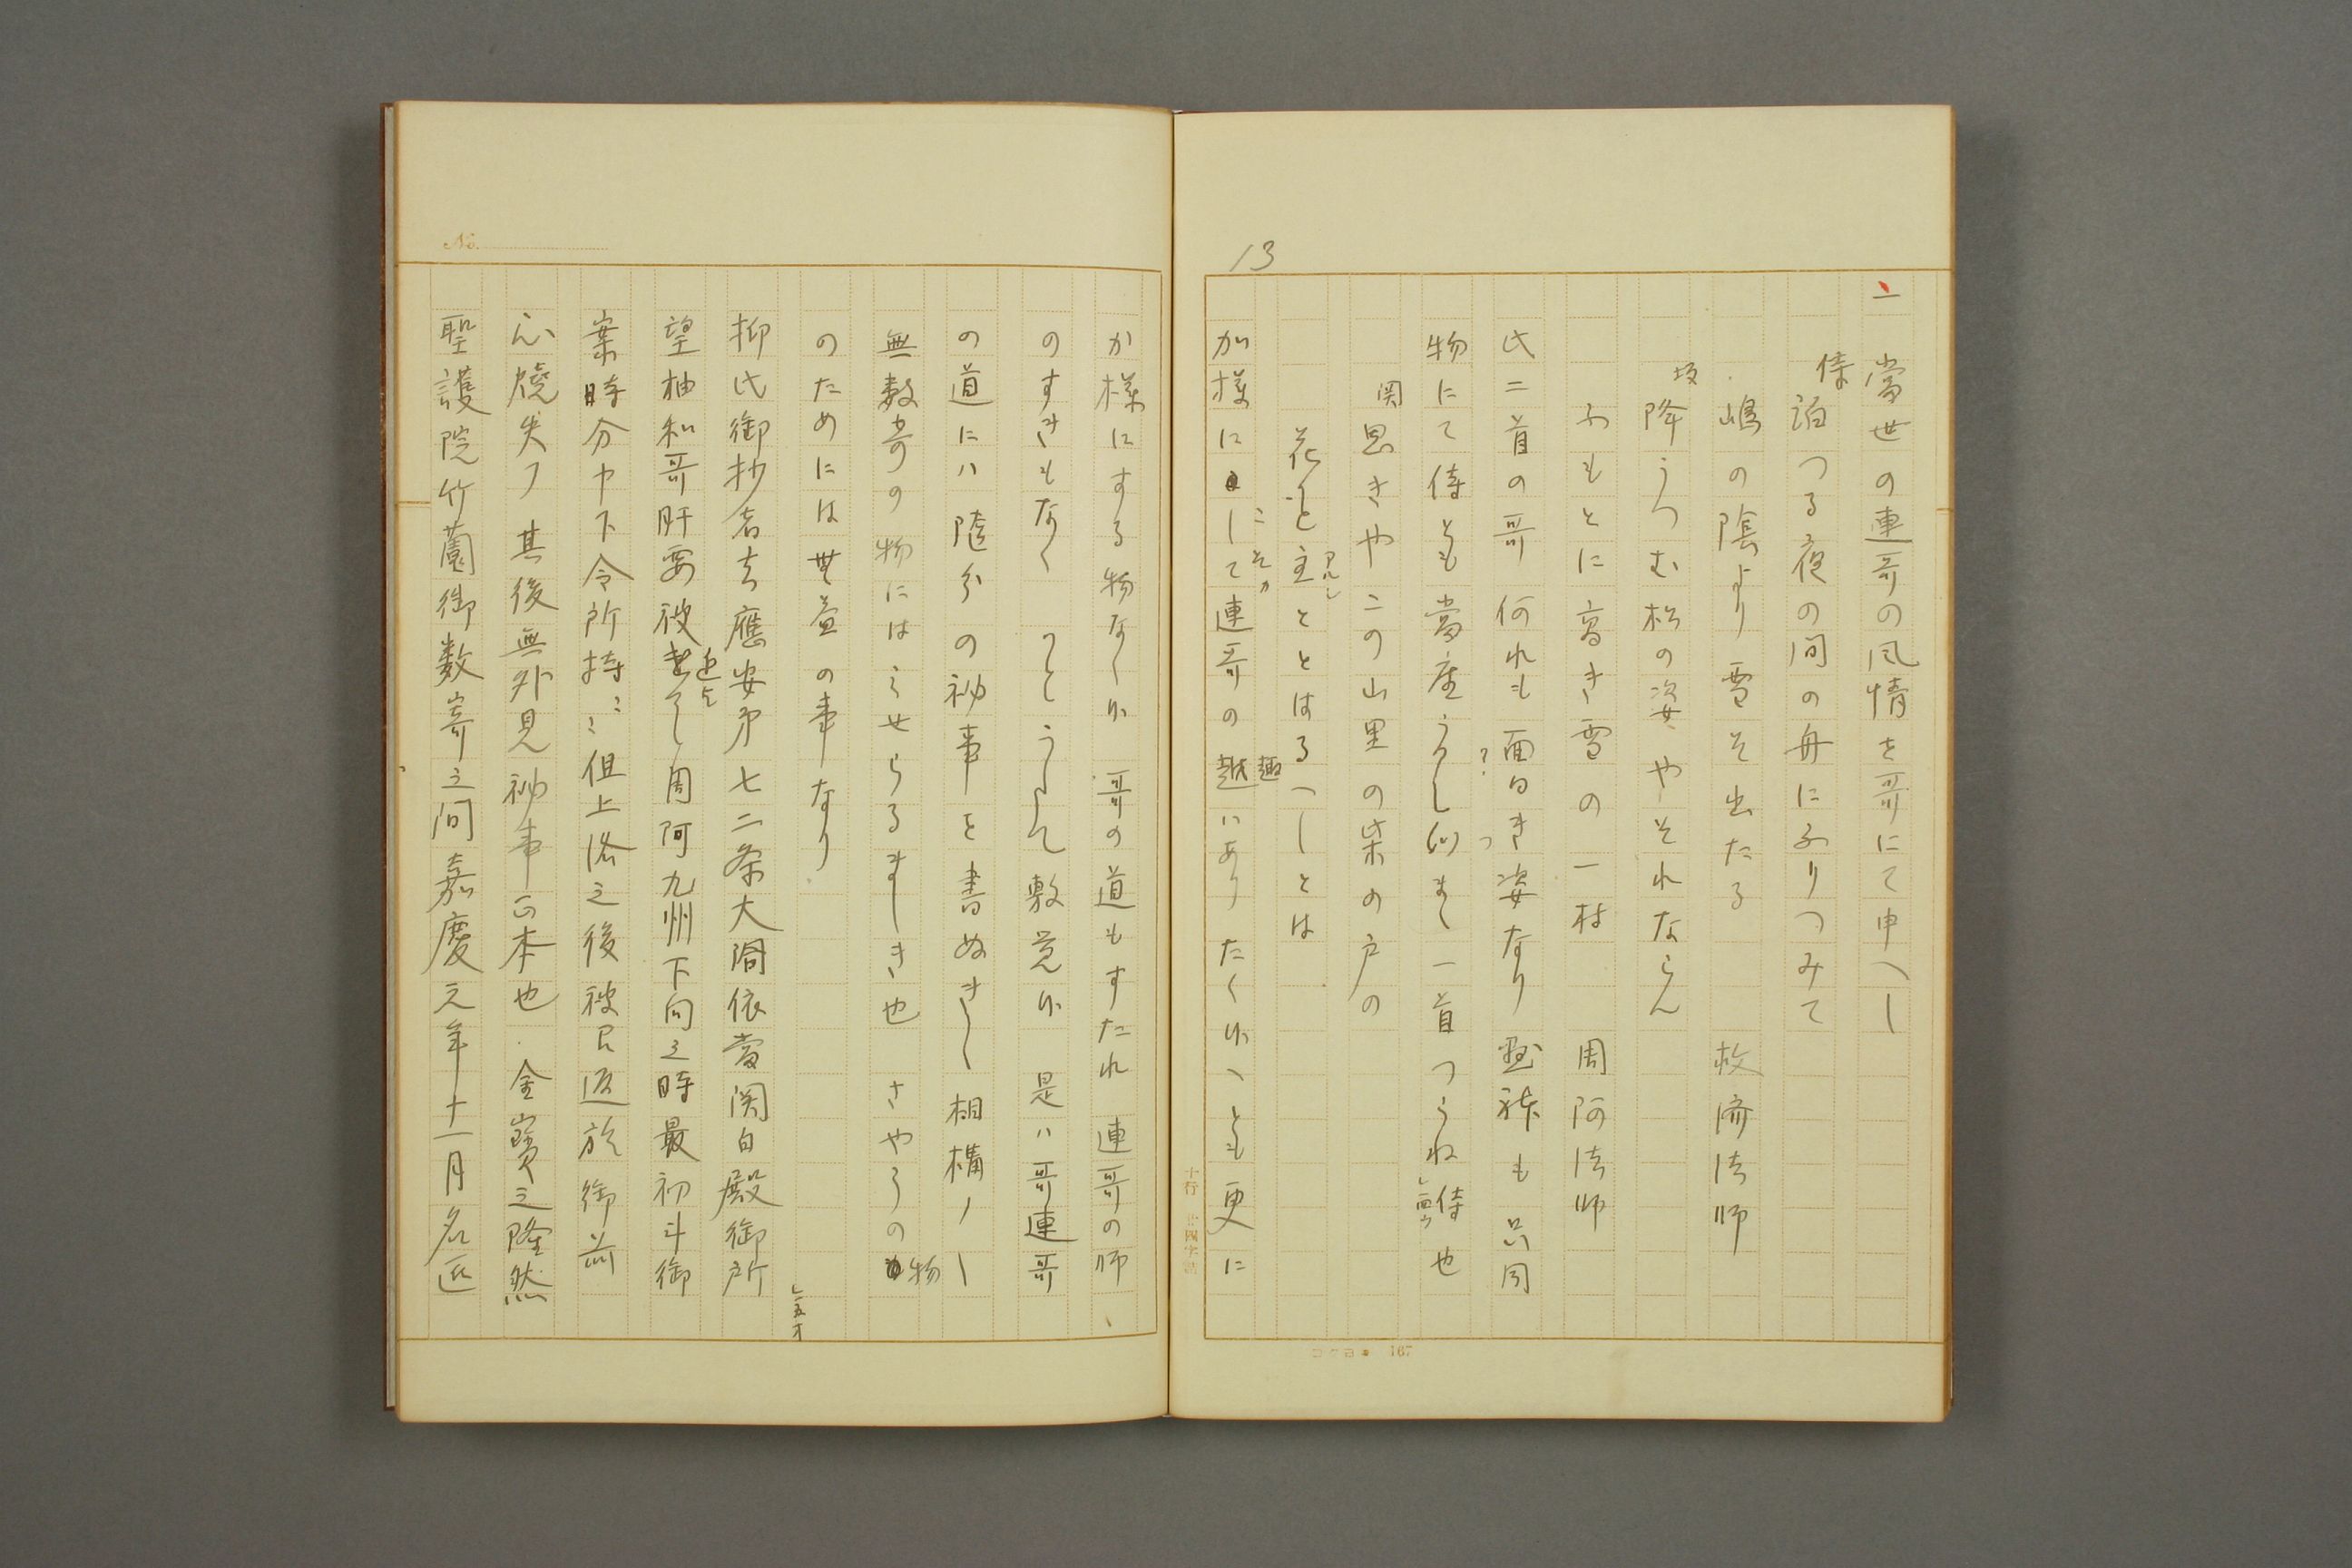 13
一 當世の連哥の風情を哥にて申へし
侍
泊つる夜の間の舟にふりつみて
嶋の陰より雪そ出たる 救済法師
坂
降うつむ松の姿やそれならん
ふもとに高き雪の一村 周阿法師
此二首の哥何れも面白き姿なり 風躰も只同
物にて侍とも當座うらし似まし一首つらね侍也
関
思きやこの山里の柴の戸の
花を主ととはるへしとは
加様にして連哥の趣にありたく候へとも更に
こそカ
趣
コクヨ 167
No.
か様にする物なく候 哥の道もすたれ 連哥の師
のすきもなく 敷覚候 是ハ哥連哥
の道にハ随分の秘事を書ぬきし 相構ノ\
無数寄の物にはみせらるましき也 さやうの物
のためには無益の事なり
五オ
抑此御抄者去應安第七二条大閤依當関白殿御所
望柚和哥肝要被 周阿九州下向之時最初斗御
案時分申下令所持 但上洛之後被召返於御前
心焼失了 其後無外見秘事之本也 金寶之隆然
聖護院竹薗御数寄之間嘉慶元年十一月名匠